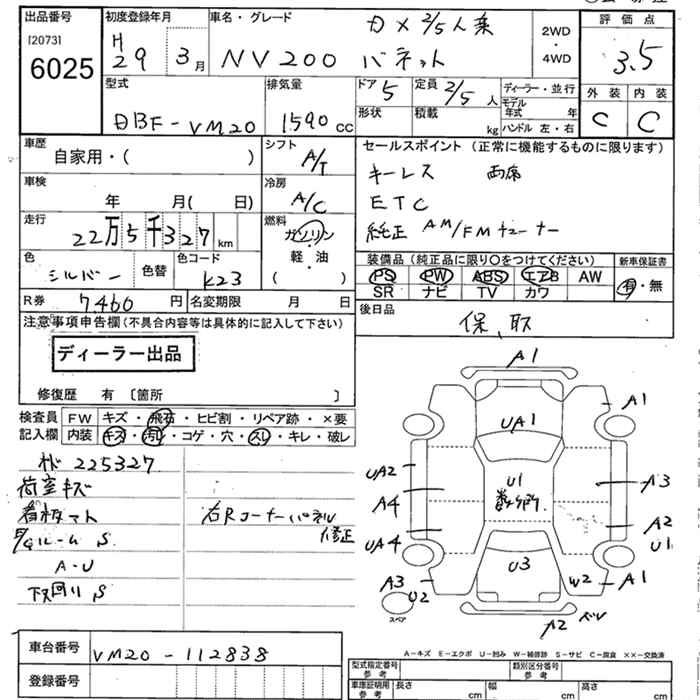 出品番号
[2073]
6025
初度登録年月
H29 3月
車名・グレード
DX 2/5人乗
NV200 バネット
2WD
・
4WD
評価点
3.5
外装 内装
C C
型式
DBF-VM20
排気量
1590 cc
ドア 5
形状
定員 2/5 人
積載 kg
ディーラー・並行
モデル年式 年
ハンドル 左・右
車歴
自家用・( )
シフト
A/T
車検
年 月( 日)
冷房
A/C
走行
22万5千327km
燃料
ガソリン
・
軽・油
( )
色
シルバー
色替
色コード
K23
R券 7,460円
名変期限 月 日
セールスポイント (正常に機能するものに限ります)
キーレス 両席
ETC
純正 AM/FMチューナー
装備品 (純正品に限り○をつけてください)
PS PW ABS エアB AW
SR ナビ TV カワ
新車保証書
有・無
後日品
保、取
注意事項申告欄 (不具合内容等は具体的に記入して下さい)
ディーラー出品
修復歴 有 〔箇所 〕
検査員記入欄
FW キズ・飛石・ヒビ割・リペア跡・×要
内装 キズ・汚れ・コゲ・穴・スレ・キレ・破レ
225327
荷室キズ
看板マト
ルーム S
A-U
下回り S
右Rコーナーパネル
修正
A1
A1
UA1
UA2
A4
UA4
U1
数ヶ所
A3
A2
U1
A3
U2
U3
W2
A1
スペア
A2
A-キズ E-エクボ U-凹み W-補修跡 S-サビ C-腐食 XX-交換済
車台番号
VM20-112838
登録番号
型式指定番号
参考
類別区分番号
参考
車庫証明用
参考
長さ cm
幅 cm
高さ cm